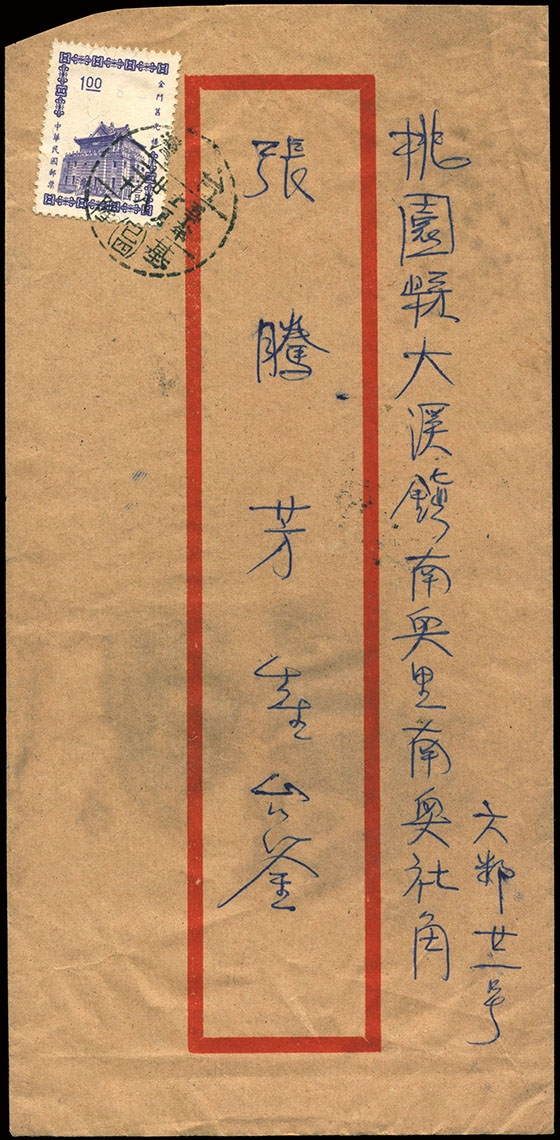 桃園縣大溪鎮南興里南興社角
六鄰廿一号
張騰芳先生台鉴
1.00
金門莒光樓
中華民國郵票